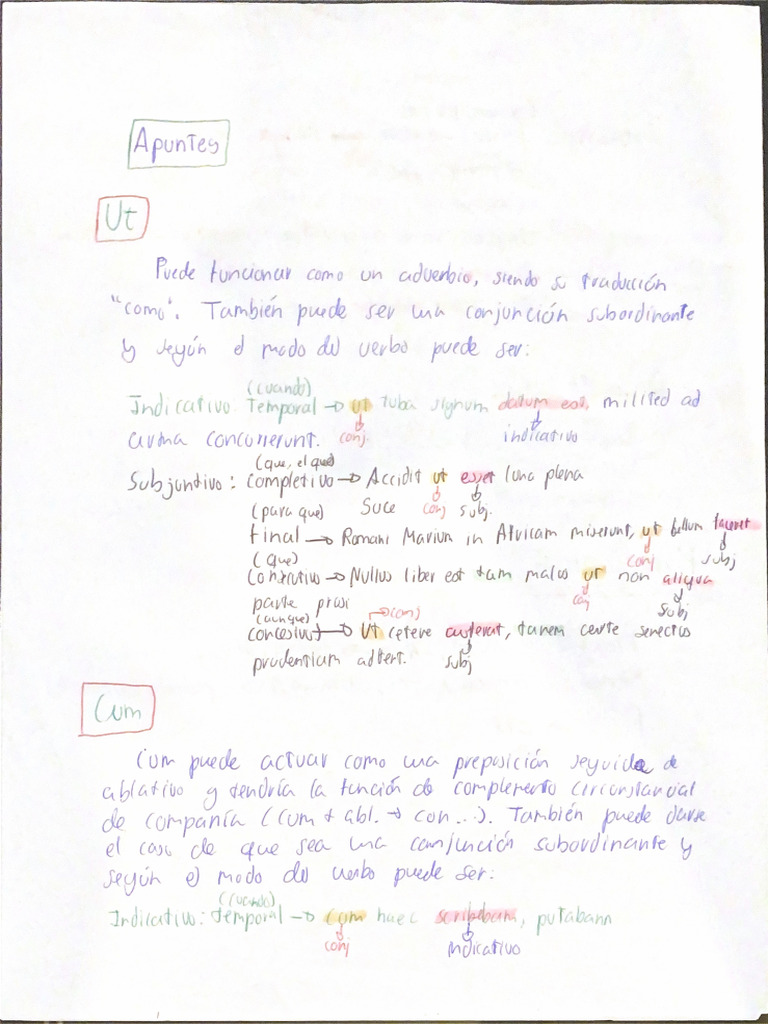 Apuntes
Ut
Puede funcionar como un adverbio, siendo su traducción
"como". También puede ser una conjunción subordinante
y según el modo del verbo puede ser:
(cuando)
Indicativo: Temporal → ut tuba signum datum est, milited ad
arma concurrerunt. conj. indicativo
(que, el que)
Subjuntivo: Completivo → Accidit ut esset luna plena
(para que) Suce conj subj.
Final → Romani Marium in Africam miserunt, ut bellum faceret
(que) conj subj
Consecutivo → Nullus liber est tam malus ut non aliqua
parte prosi conj subj
(aunque) conj
concesivo → Ut cetere auferat, tamen certe senectus
prudentiam adfert. subj
Cum
Cum puede actuar como una preposición seguida de
ablativo y tendría la función de complemento circunstancial
de compañía (cum + abl. → con...). También puede darse
el caso de que sea una conjunción subordinante y
según el modo del verbo puede ser:
(cuando)
Indicativo: temporal → Cum haec scribebam, putabann
conj indicativo